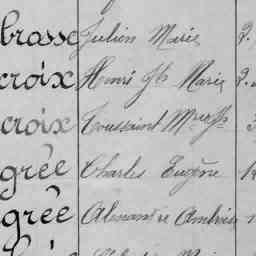 brosse Julien Marie 2.
croix Henri Jh Marie 2.
croix Toussaint Mie Jh 3
grée Charles Eugène 1
grée Alexandre Ambroise 1